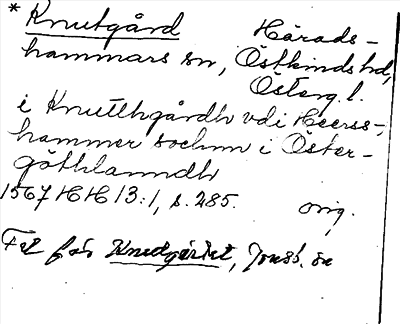 * Knutgård Härads-
hammars sn, Östkinds hd,
Österg. l.
i Knutthgårdh vdi Heerss-
hammer sochnn i Öster-
göthlanndh
1567 HH 13:1, s. 285. orig.
Fel för Knutgärdet, Jonsb. sn